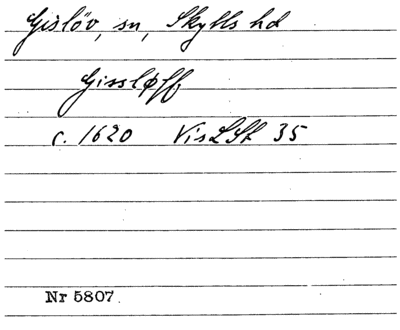 Gislöv, sn, Skytts hd
Gissløff
c. 1620 VisLSt 35
Nr 5807